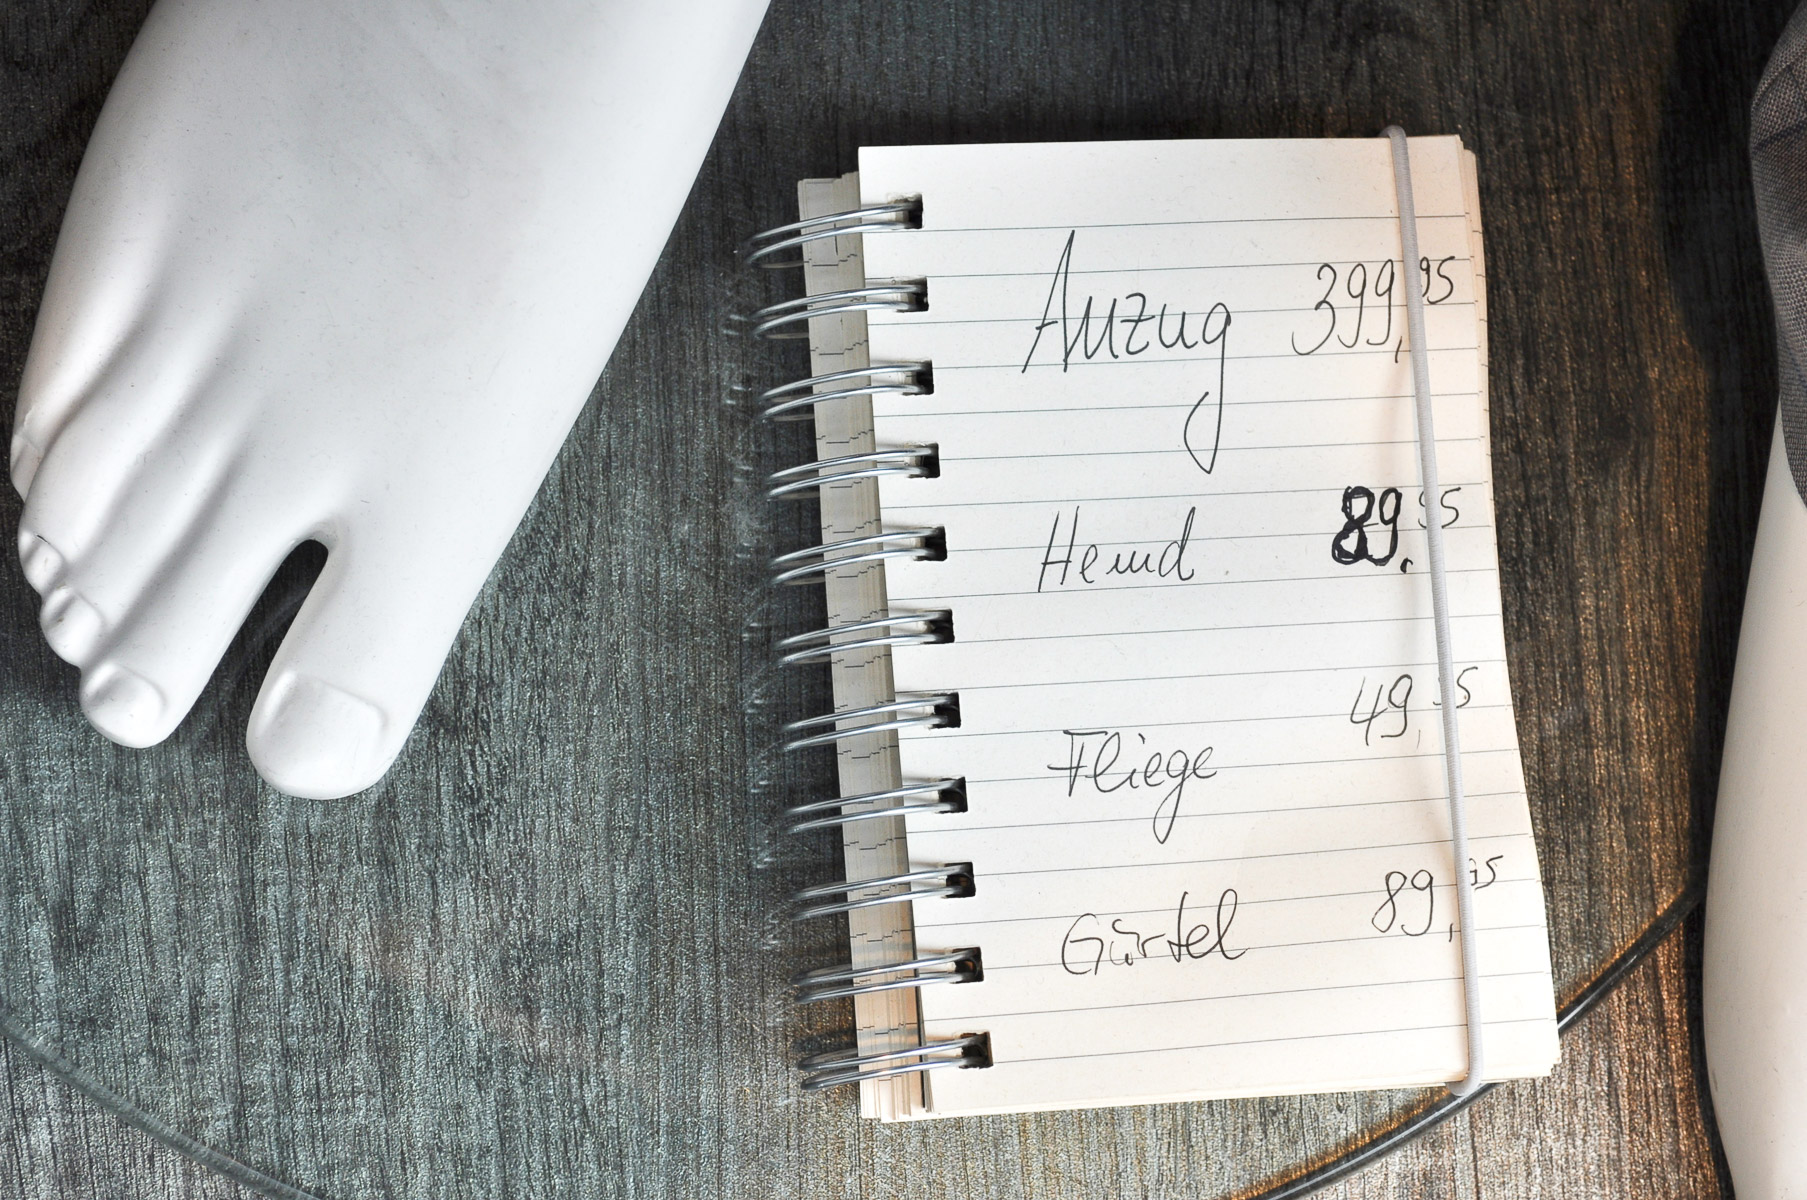 Anzug 399,95
Hemd 89,95
Fliege 49,95
Gürtel 89,95